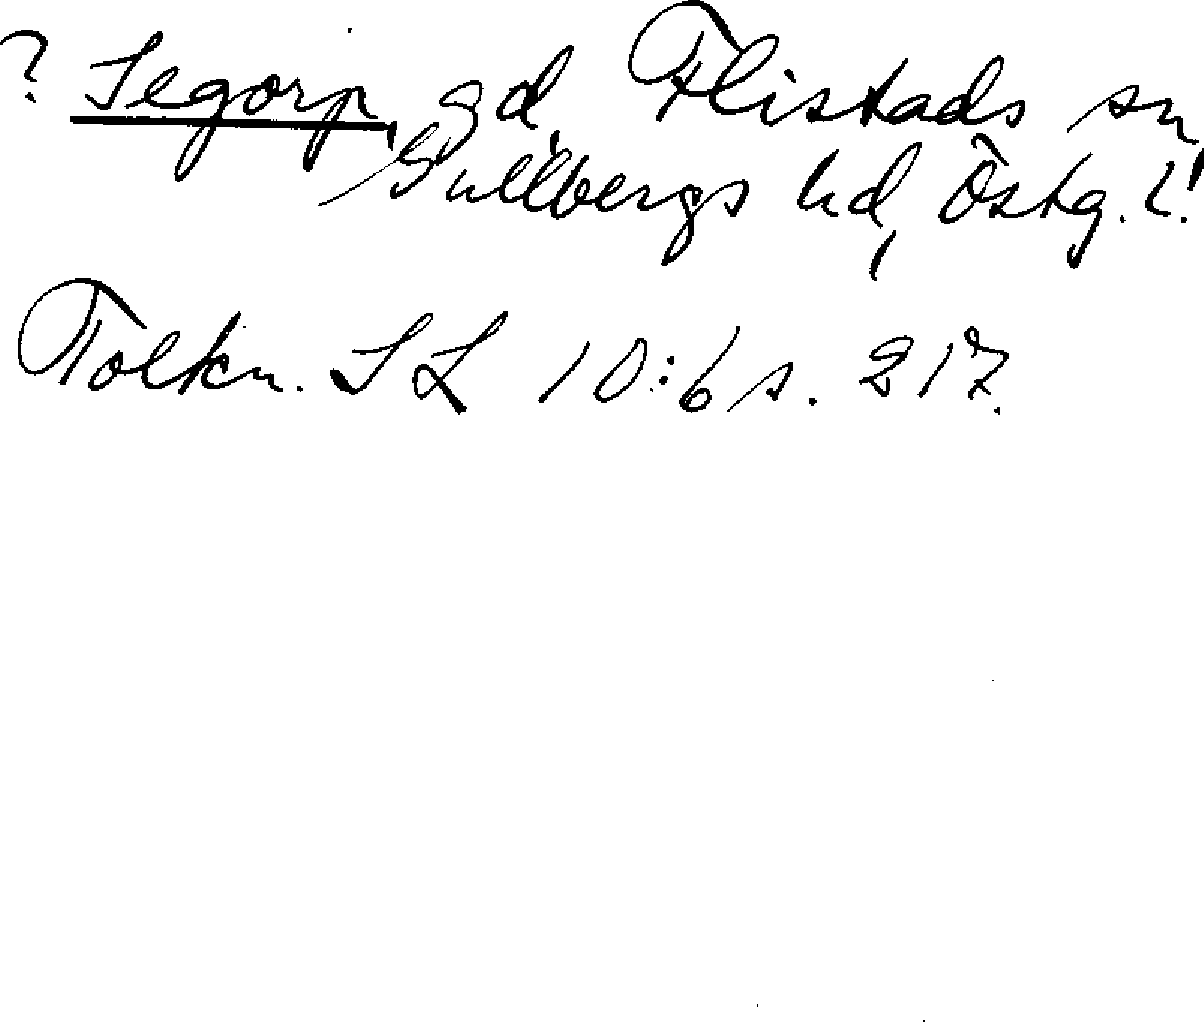 ? Segorp, gd, Flistads sn,
Gullbergs hd, Östg. l.
Tolkn. SL 10:6 s. 217.